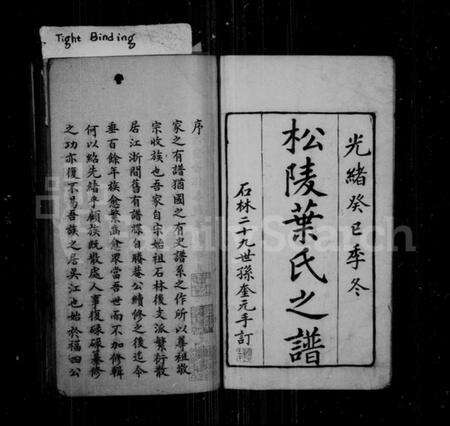 Tight Binding
光緒癸巳季冬
松陵葉氏之譜
石林二十九世孫奎元手訂
序
家之有譜猶國之有史譜系之作所以尊祖敬
宗收族也吾家自宋始祖石林後支派繁衍散
居江浙間舊有譜牒自勝菴公續修之後迄今
垂百餘年族愈繁齒愈眾當吾世而不加修輯
何以紹先緒乎顧族既散處人事復碌碌纂修
之功亦復不易吾族之居吳江也始於福四公
FamilySearch